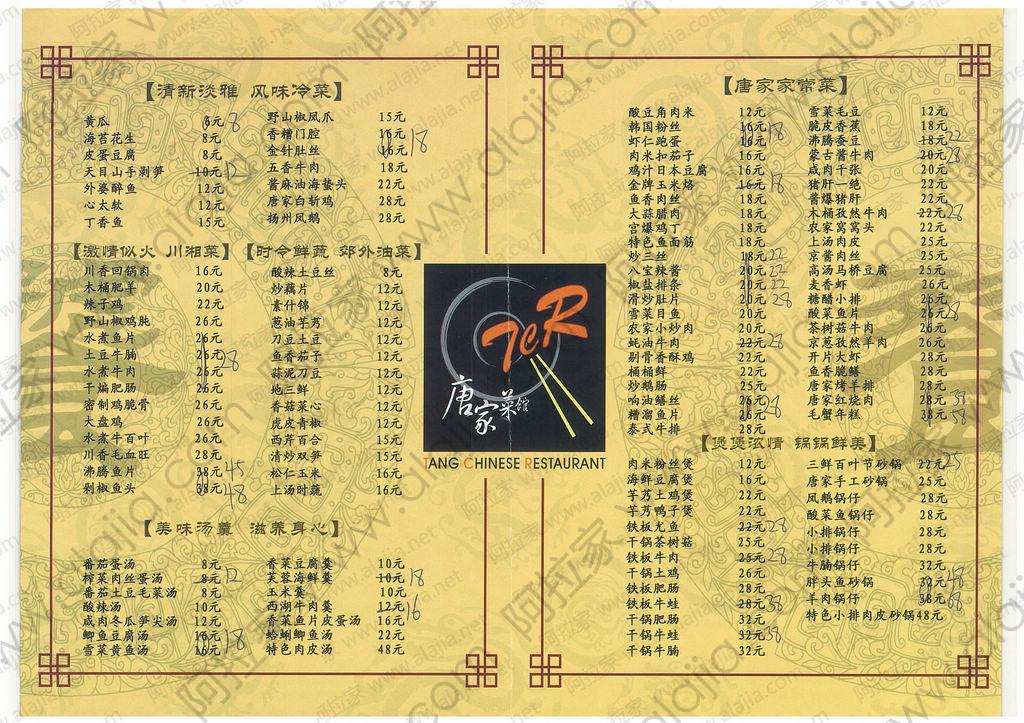 【清新淡雅 风味冷菜】
黄瓜 6元 8
海苔花生 8元
皮蛋豆腐 8元
天目山手剥笋 10元 12
外婆醉鱼 12元
心太软 12元
丁香鱼 15元
野山椒凤爪 15元
香糟门腔 16元
金针肚丝 16元 18
五香牛肉 18元
酱麻油海蜇头 22元
唐家白斩鸡 28元
扬州风鹅 28元
【激情似火 川湘菜】
川香回锅肉 16元
木桶肥羊 20元
辣子鸡 22元
野山椒鸡肫 26元
水煮鱼片 26元
土豆牛腩 26元 28
水煮牛肉 26元
干煸肥肠 26元
密制鸡脆骨 26元
大盘鸡 26元
水煮牛百叶 26元
川香毛血旺 28元
沸腾鱼片 38元 45
剁椒鱼头 38元 48
【时令鲜蔬 郊外油菜】
酸辣土豆丝 8元
炒藕片 12元
素什锦 12元
葱油芋艿 12元
刀豆土豆 12元
鱼香茄子 12元
蒜泥刀豆 12元
地三鲜 12元
香菇菜心 12元
虎皮青椒 12元
西芹百合 15元
清炒双笋 15元
松仁玉米 16元
上汤时蔬 16元
【美味汤羹 滋养身心】
番茄蛋汤 8元
榨菜肉丝蛋汤 8元 12
番茄土豆毛菜汤 8元
酸辣汤 10元
咸肉冬瓜笋尖汤 12元
鲫鱼豆腐汤 16元
雪菜黄鱼汤 16元 18
香菜豆腐羹 10元
芙蓉海鲜羹 10元 18
玉米羹 10元
西湖牛肉羹 12元 16
香菜鱼片皮蛋汤 16元
蛤蜊鲫鱼汤 22元
特色肉皮汤 48元
TCR
唐家菜馆
TANG CHINESE RESTAURANT
【唐家家常菜】
酸豆角肉米 12元
韩国粉丝 16元 18
虾仁跑蛋 16元
肉米扣茄子 16元
鸡汁日本豆腐 16元
金牌玉米烙 16元 18
鱼香肉丝 18元
大蒜腊肉 18元
宫爆鸡丁 18元
特色鱼面筋 18元
炒三丝 18元 22
八宝辣酱 20元 22
椒盐排条 20元 22
滑炒肚片 20元 28
雪菜目鱼 20元
农家小炒肉 20元
蚝油牛肉 22元 28
剔骨香酥鸡 22元
桶桶鲜 22元
炒鹅肠 25元
响油鳝丝 26元
糟溜鱼片 26元 28
泰式牛排 28元
雪菜毛豆 12元
脆皮香蕉 18元
沸腾蚕豆 18元 22
蒙古酱牛肉 20元 28
咸肉千张 20元
猪肝一绝 22元
酱爆猪肝 22元
木桶孜然牛肉 22元 28
农家窝窝头 22元
上汤肉皮 25元
京酱肉丝 25元
高汤马桥豆腐 25元
麦香虾 26元
糖醋小排 26元
酸菜鱼片 26元 28
茶树菇牛肉 26元
京葱孜然羊肉 26元
开片大虾 28元
鱼香脆鳝 28元
唐家烤羊排 28元
唐家红烧肉 28元
毛蟹年糕 38元 58
【煲煲浓情 锅锅鲜美】
肉米粉丝煲 12元
海鲜豆腐煲 16元
芋艿土鸡煲 22元
芋艿鸭子煲 22元
铁板尤鱼 22元 28
干锅茶树菇 25元
铁板牛肉 25元 28
干锅土鸡 26元
铁板肥肠 28元
铁板牛蛙 28元 38
干锅肥肠 32元
干锅牛蛙 32元 38
干锅牛腩 32元
三鲜百叶节砂锅 22元 25
唐家手工砂锅 25元
凤鹅锅仔 28元
酸菜鱼锅仔 28元
小排锅仔 28元
小排锅仔 28元
牛腩锅仔 32元
胖头鱼砂锅 32元 48
羊肉锅仔 38元 68
特色小排肉皮砂锅48元
阿拉家 www.alajia.net
www.alajia.com